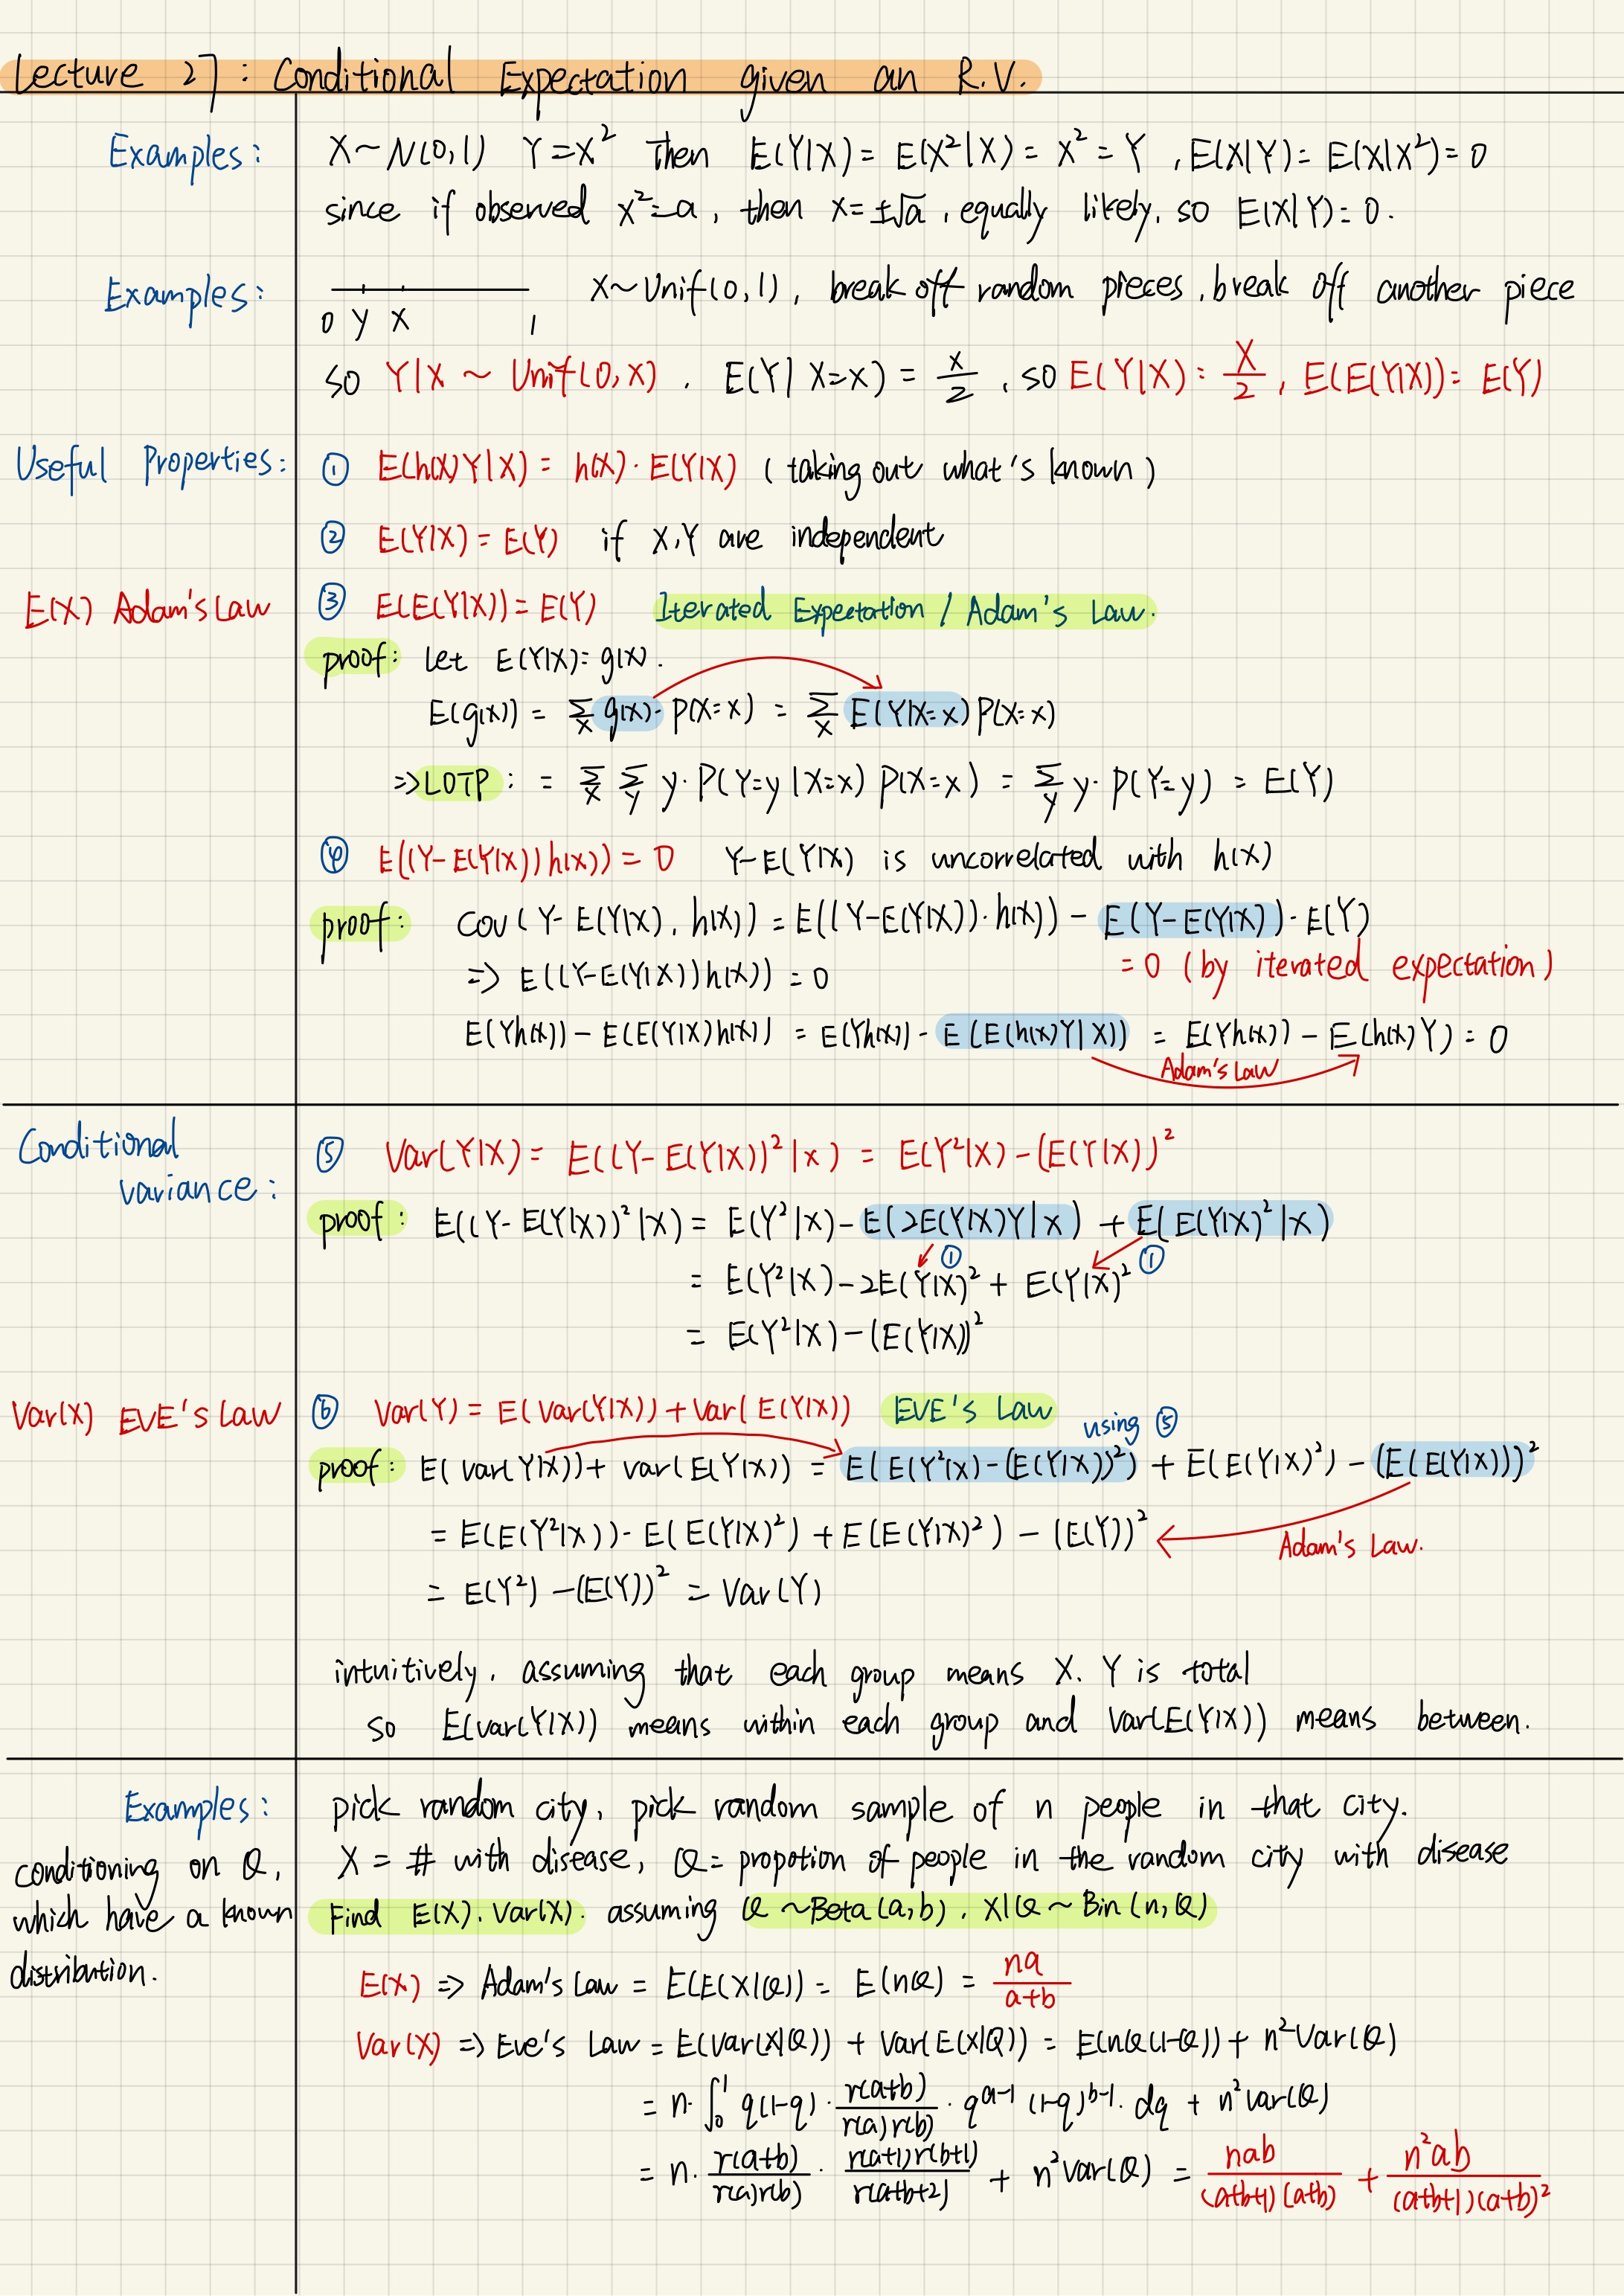 Lecture 27 : Conditional Expectation given an R.V.
Examples: X~N(0,1) Y=X² Then E(Y|X)= E(X²|X)= X²=Y , E(X|Y)= E(X|X²)=0
since if observed x²=a, then x=±√a , equally likely, so E(X|Y)=0.
Examples: X~Unif(0,1), break off random pieces, break off another piece
0 Y X 1
so Y|X ~ Unif(0,X) . E(Y|X=x) = x/2 , so E(Y|X)= X/2 , E(E(Y|X))= E(Y)
Useful Properties: ① E(h(X)Y|X)= h(X)·E(Y|X) (taking out what's known)
② E(Y|X) = E(Y) if X,Y are independent
E(X) Adam's Law ③ E(E(Y|X))=E(Y) Iterated Expectation / Adam's Law.
proof: let E(Y|X)=g(X).
E(g(X)) = Σₓ g(x)· P(X=x) = Σₓ E(Y|X=x) P(X=x)
=> LOTP : = Σₓ Σ_y y· P(Y=y|X=x) P(X=x) = Σ_y y· P(Y=y) = E(Y)
④ E((Y-E(Y|X))h(X)) = 0 Y-E(Y|X) is uncorrelated with h(X)
proof: Cov(Y-E(Y|X), h(X)) = E((Y-E(Y|X))·h(X)) - E(Y-E(Y|X))·E(Y)
=> E((Y-E(Y|X))h(X)) = 0 = 0 (by iterated expectation)
E(Yh(X)) - E(E(Y|X)h(X)) = E(Yh(X)) - E(E(h(X)Y|X)) = E(Yh(X)) - E(h(X)Y) = 0
Adam's Law
Conditional variance: ⑤ Var(Y|X) = E((Y-E(Y|X))²|X) = E(Y²|X)-(E(Y|X))²
proof: E((Y-E(Y|X))²|X) = E(Y²|X) - E(2E(Y|X)Y|X) + E(E(Y|X)²|X)
① ①
= E(Y²|X)-2E(Y|X)² + E(Y|X)²
= E(Y²|X)-(E(Y|X))²
Var(X) EVE's Law ⑥ Var(Y) = E(Var(Y|X))+Var(E(Y|X)) EVE's Law
using ⑤
proof: E(Var(Y|X))+ Var(E(Y|X)) = E(E(Y²|X)-(E(Y|X))²) + E(E(Y|X)²) - (E(E(Y|X)))²
= E(E(Y²|X)) - E(E(Y|X)²) + E(E(Y|X)²) - (E(Y))² Adam's Law.
= E(Y²) - (E(Y))² = Var(Y)
intuitively, assuming that each group means X. Y is total
so E(Var(Y|X)) means within each group and Var(E(Y|X)) means between.
Examples: pick random city, pick random sample of n people in that city.
conditioning on Q, X = # with disease, Q= propotion of people in the random city with disease
which have a known Find E(X). Var(X). assuming Q ~Beta(a,b), X|Q ~ Bin(n,Q)
distribution.
E(X) => Adam's Law = E(E(X|Q)) = E(nQ) = na/(a+b)
Var(X) => Eve's Law = E(Var(X|Q)) + Var(E(X|Q)) = E(nQ(1-Q)) + n²Var(Q)
= n·∫₀¹ q(1-q)· r(a+b)/r(a)r(b) · q^(a-1) (1-q)^(b-1). dq + n²Var(Q)
= n· r(a+b)/r(a)r(b) · r(a+1)r(b+1)/r(a+b+2) + n²Var(Q) = nab/(a+b+1)(a+b) + n²ab/(a+b+1)(a+b)²